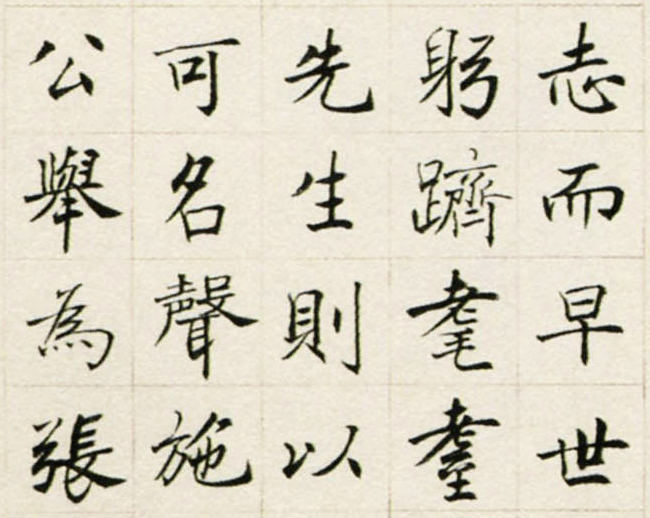 志而早世
躬躋耄耋
先生則以
可名聲施
公舉為張